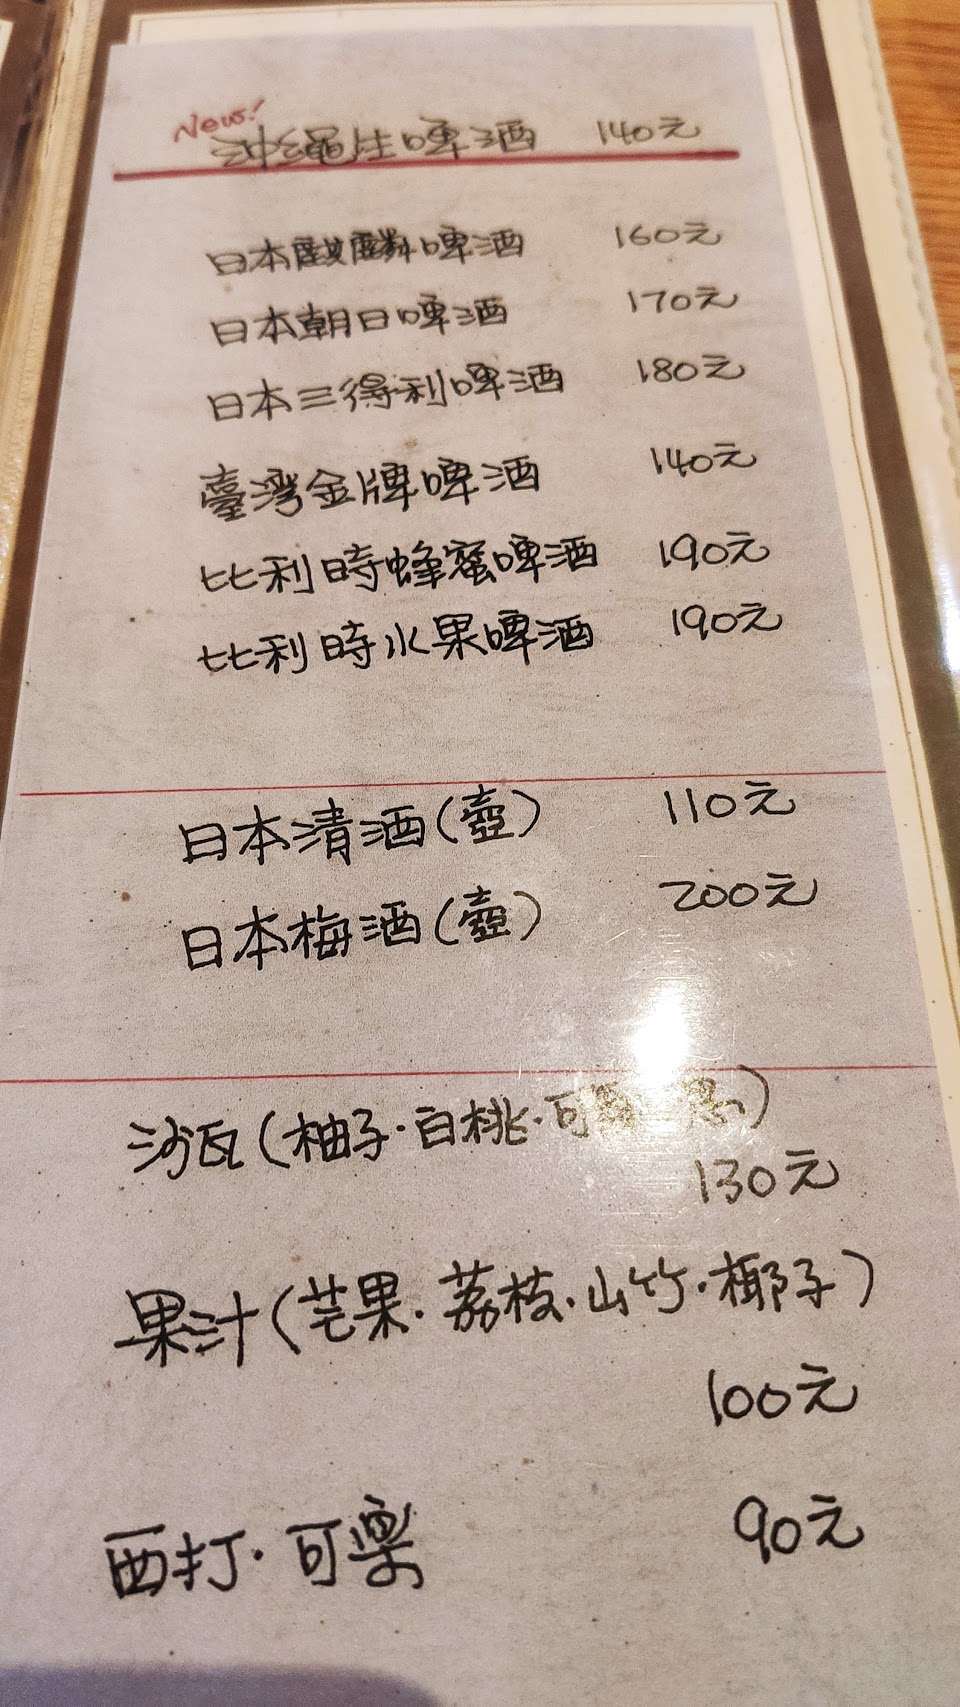 New!
沖繩生啤酒 140元
日本麒麟啤酒 160元
日本朝日啤酒 170元
日本三得利啤酒 180元
臺灣金牌啤酒 140元
比利時蜂蜜啤酒 190元
比利時水果啤酒 190元
日本清酒(壺) 110元
日本梅酒(壺) 200元
沙瓦(柚子·白桃·可)
130元
果汁(芒果·荔枝·山竹·椰子)
100元
西打·可樂 90元